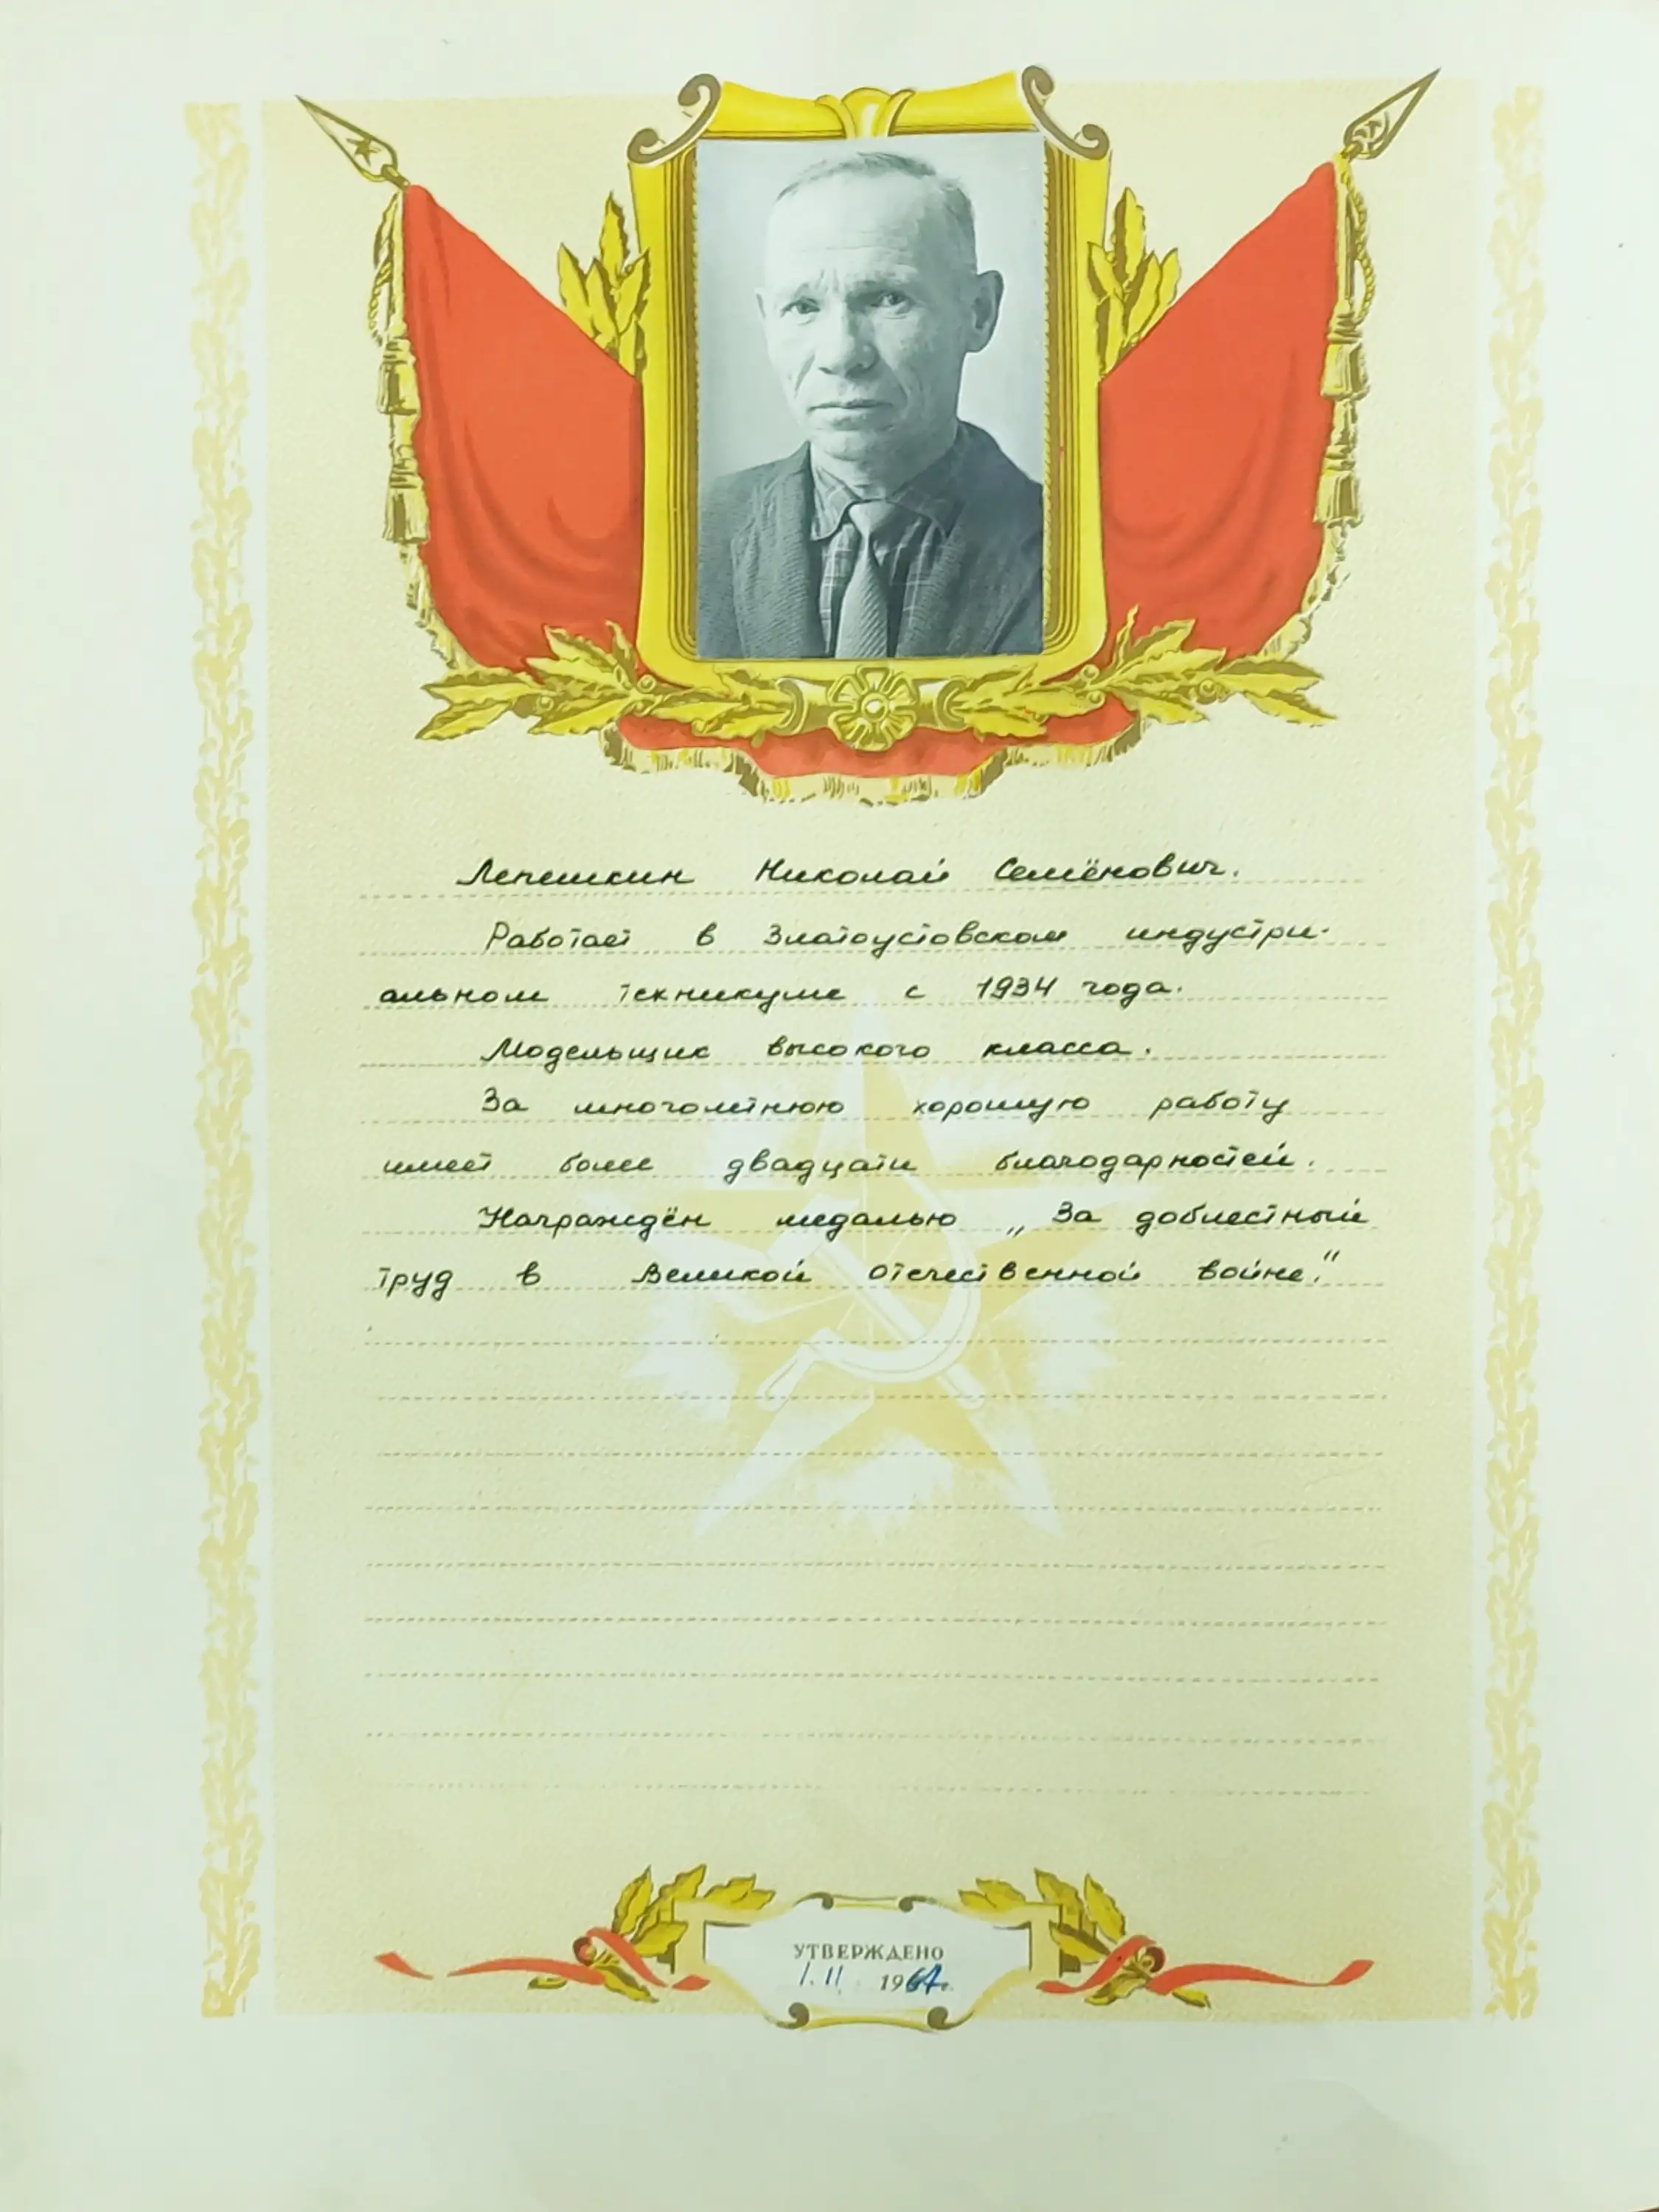 Лепешкин Николай Семёнович.
Работает в Златоустовском индустри-
альном техникуме с 1934 года.
Модельщик высокого класса.
За многолетнюю хорошую работу
имеет более двадцати благодарностей.
Награждён медалью „За доблестный
труд в Великой Отечественной войне."
УТВЕРЖДЕНО
1.II 1967г.